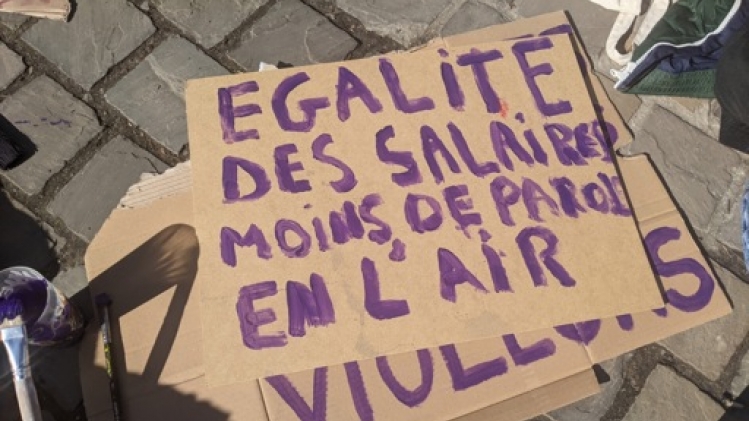 EGALITE
DES SALAIRES
MOINS DE PAROLE
EN L'AIR